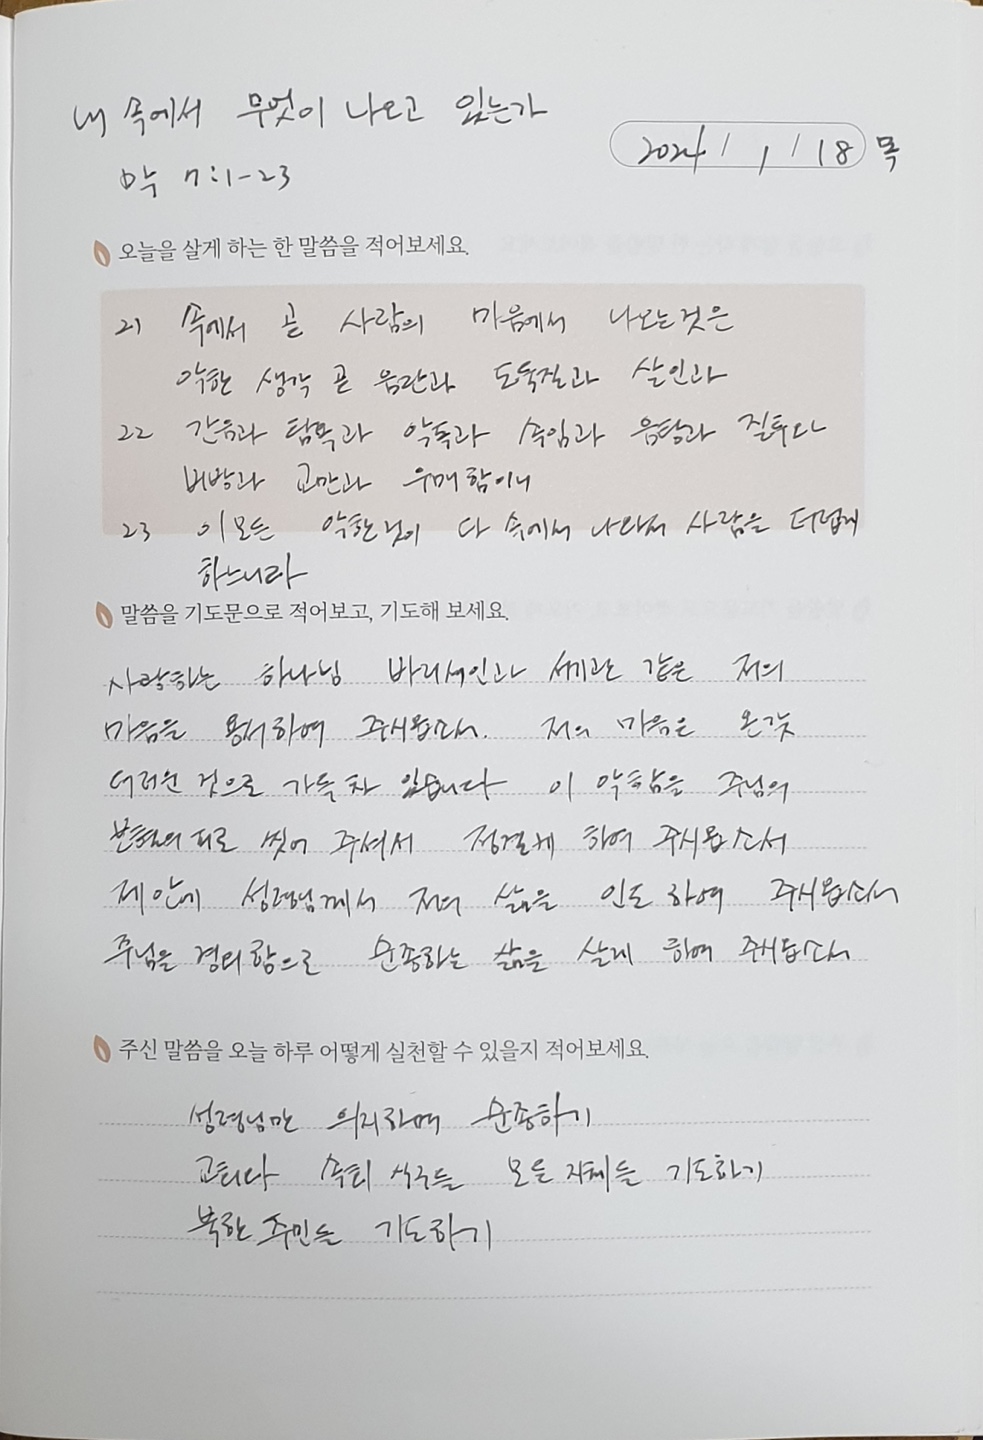 내 속에서 무엇이 나오고 있는가
2024 / 1 / 18 목
막 7:1-23
오늘을 살게 하는 한 말씀을 적어보세요.
21 속에서 곧 사람의 마음에서 나오는것은
악한 생각 곧 음란과 도둑질과 살인과
22 간음과 탐욕과 악독과 속임과 음탕과 질투와
비방과 교만과 우매함이니
23 이 모든 악한것이 다 속에서 나와서 사람을 더럽게
하느니라
말씀을 기도문으로 적어보고, 기도해 보세요.
사랑하는 하나님 바리새인과 서기관 같은 저의
마음을 용서하여 주시옵소서. 저의 마음은 온갖
더러운 것으로 가득 차 있습니다 이 악함을 주님의
보혈의 피로 씻어 주셔서 정결케 하여 주시옵소서
제안에 성령님께서 저의 삶을 인도 하여 주시옵소서
주님을 경외함으로 순종하는 삶을 살게 하여 주시옵소서
주신 말씀을 오늘 하루 어떻게 실천할 수 있을지 적어보세요.
성령님만 의지하며 순종하기
속회 식구들 모든 지체들 기도하기
북한 주민들 기도하기